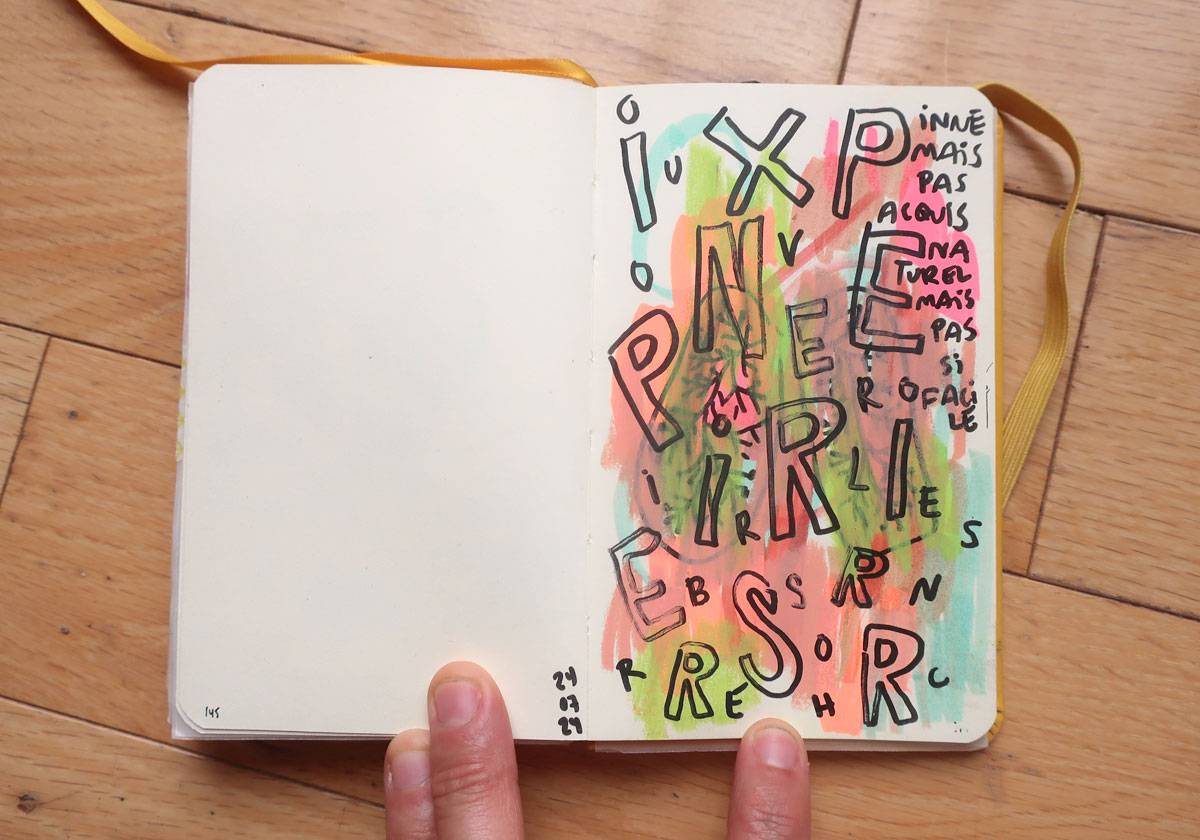 145
24
07
24
O
i U X P
iNNÉ
MAiS
PAS
ACQUiS
NA
TUREL
MAiS
PAS
Si
FACi
LE
O N V E
P E R O
O R
i I R L I E
S
E B S S R N
R R E H O R C